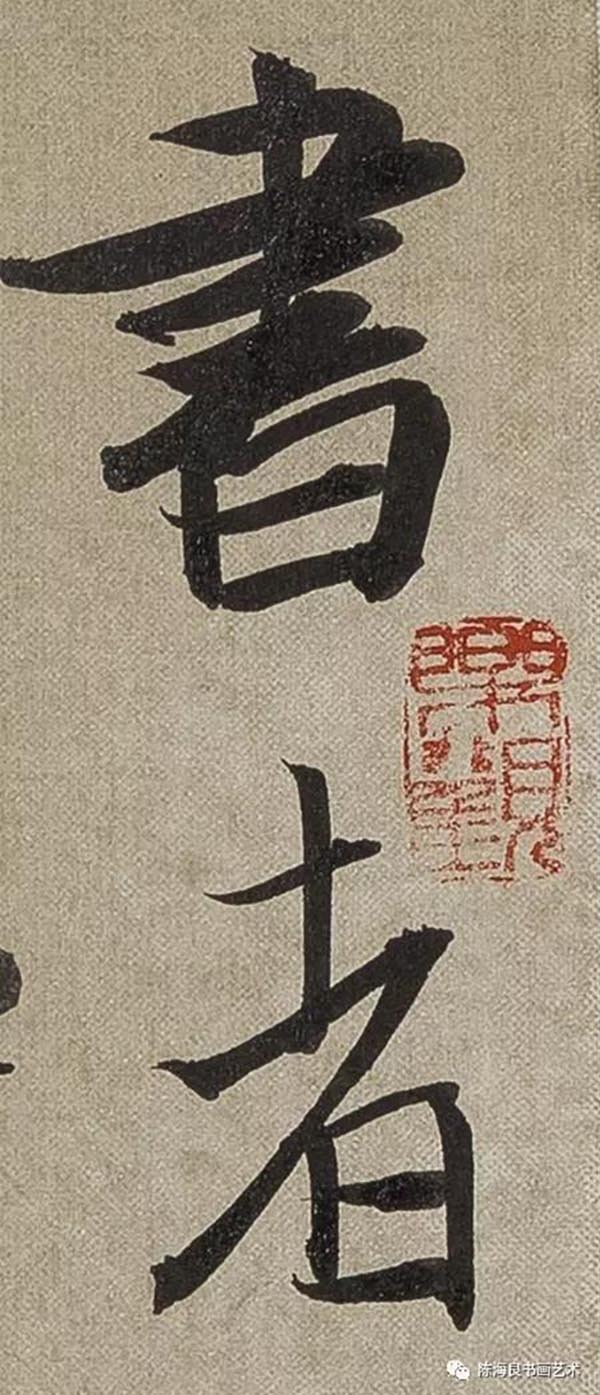 書者
陈海良书画艺术